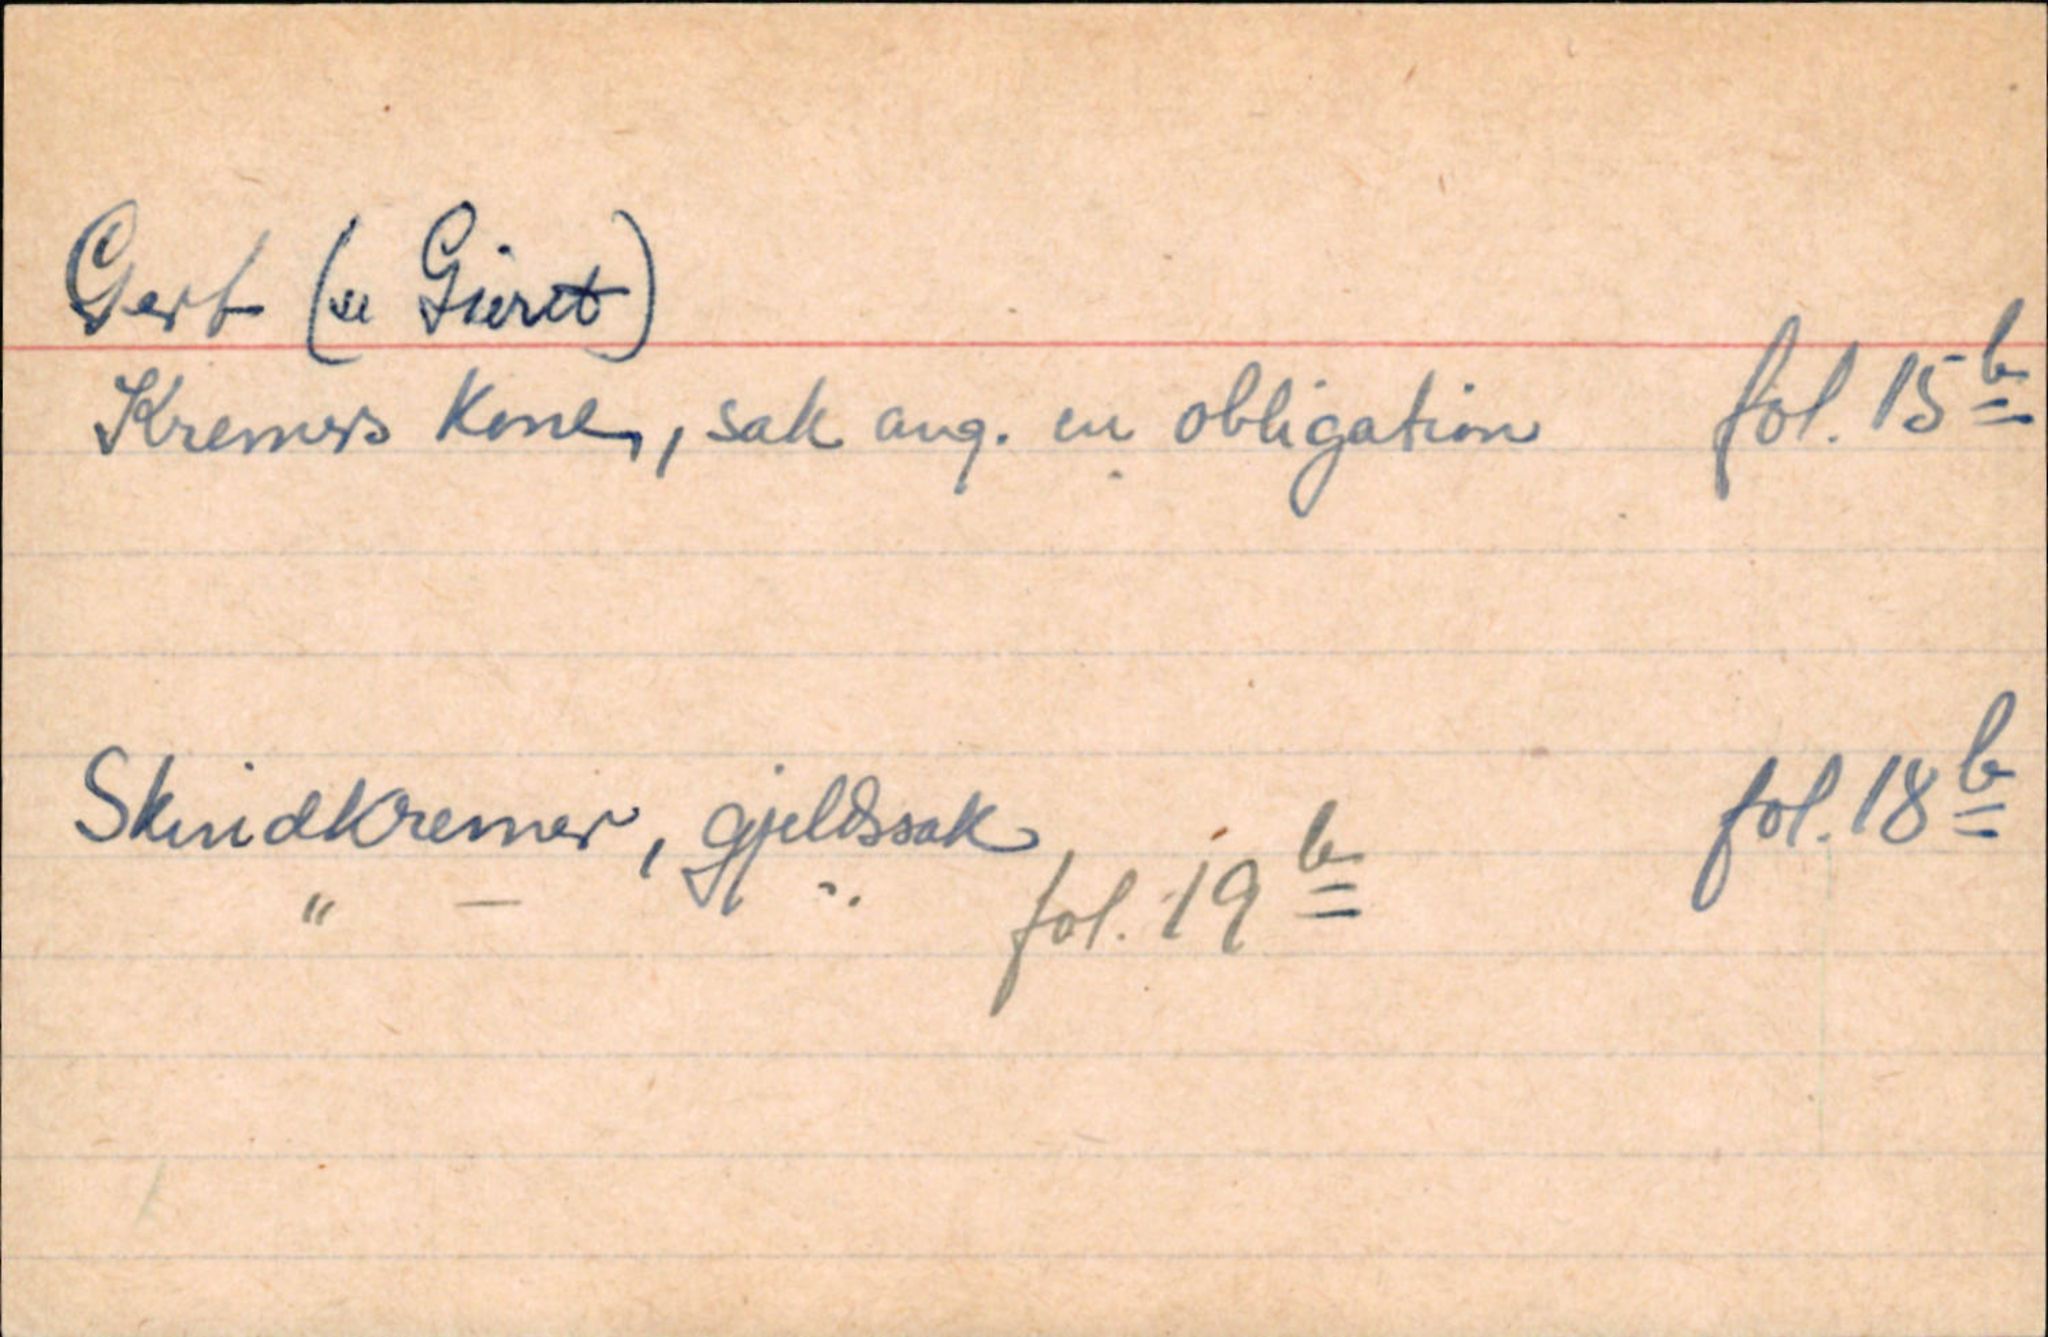 Gert (se Gieret)
Kremers kone, sak ang. en obligation fol. 15 b
Skindkremer, gjeldssak fol. 18 b
" — " fol. 19 b